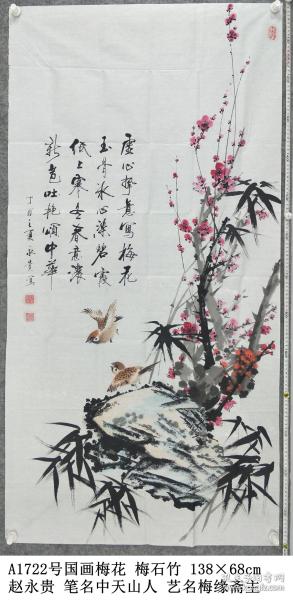 虚心挚意寫梅花
玉骨冰心染碧霞
纸上寒冬春意濃
新苞吐艳頌中華
丁酉之夏永貴寫
A1722号国画梅花 梅石竹 138×68cm
赵永贵 笔名中天山人 艺名梅缘斋主